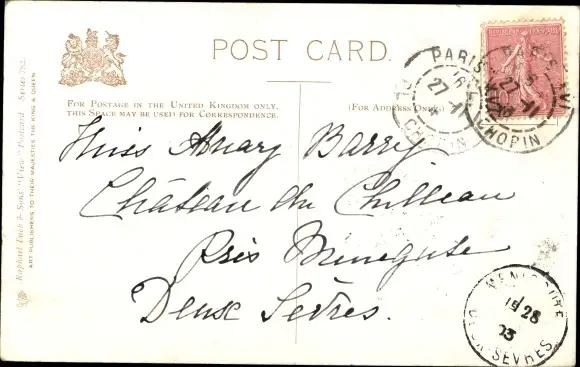 POST CARD.
FOR POSTAGE IN THE UNITED KINGDOM ONLY,
THIS SPACE MAY BE USED FOR CORRESPONDENCE.
(FOR ADDRESS ONLY.)
Raphael Tuck & Sons' "View" Postcard Series 782.
ART PUBLISHERS TO THEIR MAJESTIES THE KING & QUEEN
PARIS XVI
27
CHOPIN
PARIS XVI
27
CHOPIN
Miss Mary Barry
Château du Chilleau
Près Menegute
Deux Sèvres.
28
03
SEVRES